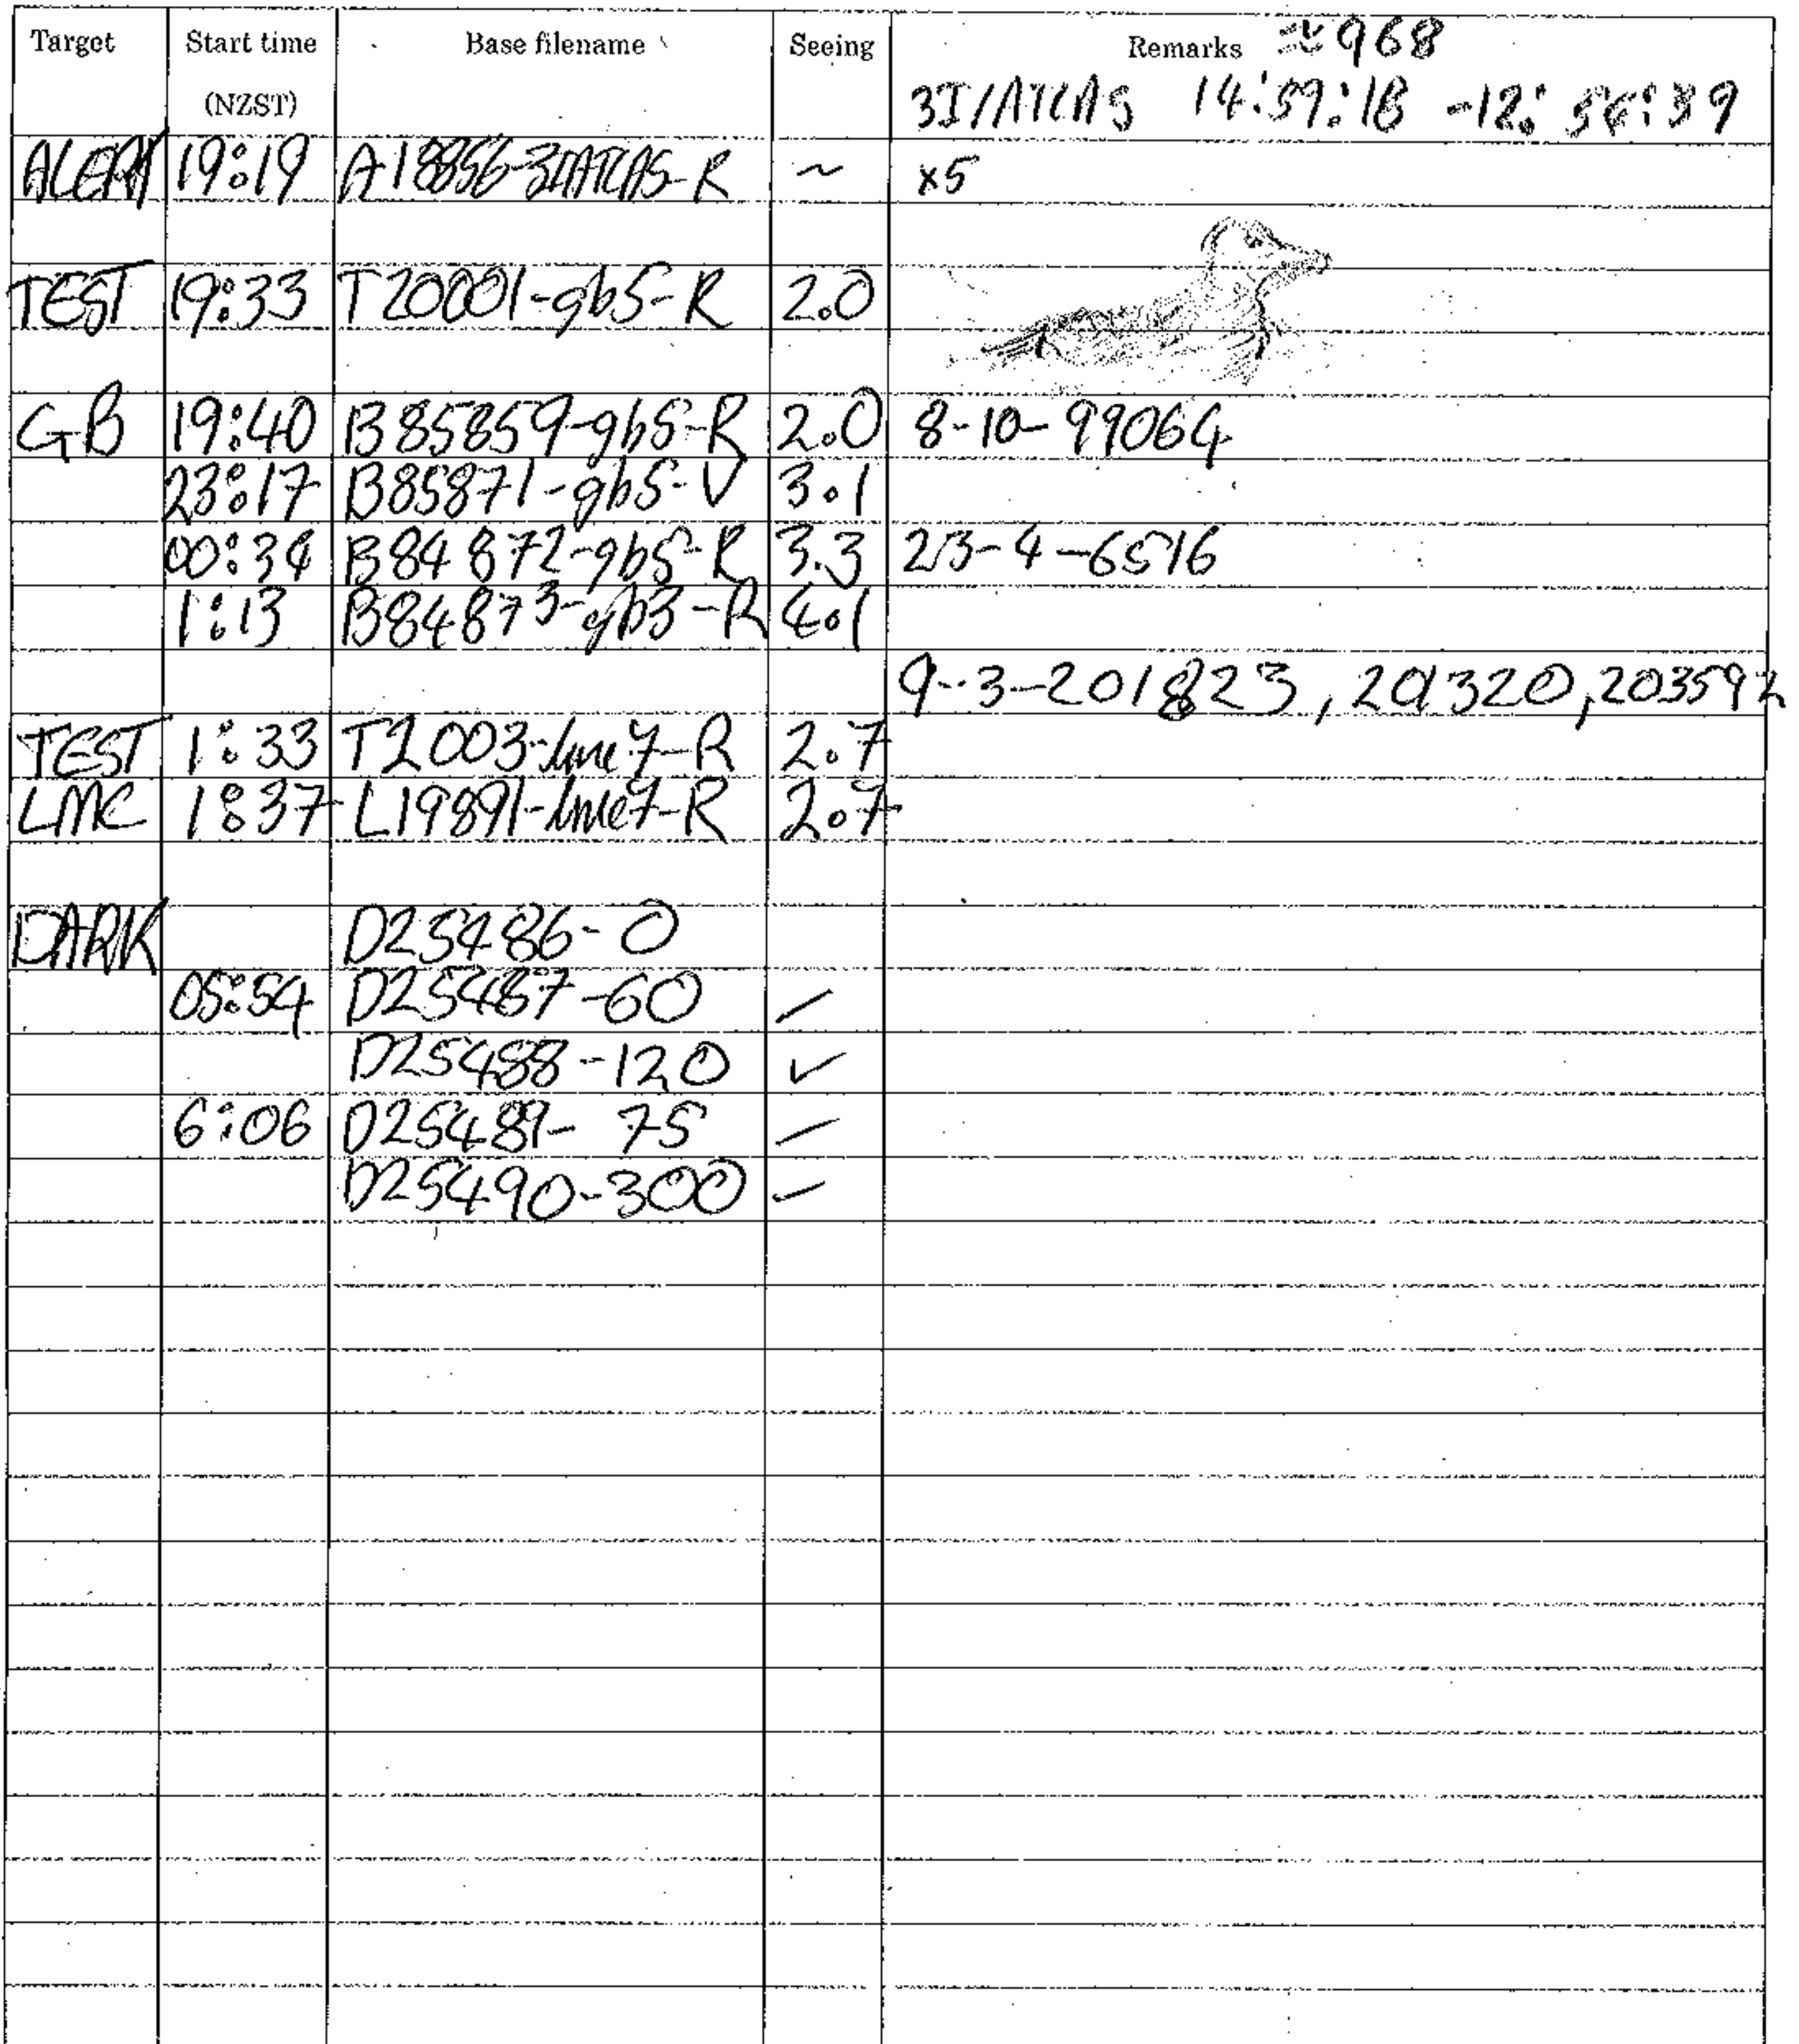 Target Start time Base filename Seeing Remarks ≈968
(NZST) 3I/ATLAS 14:59:18 -12:54:39
ALERT 19:19 A18856-3IATLAS-R ~ x5
TEST 19:33 T20001-gb5-R 2.0
GB 19:40 B85859-gb5-R 2.0 8-10-99064
23:17 B85871-gb5-V 3.1
00:34 B84872-gb5-R 3.3 23-4-6516
1:13 B84873-gb3-R 4.1
9-3-201823, 201320, 203592
TEST 1:33 T2003-lmc7-R 2.7
LMC 1:37 L19891-lmc7-R 2.7
DARK D25486-0
05:54 D25487-60
D25488-120 ✓
6:06 D25489-75
D25490-300